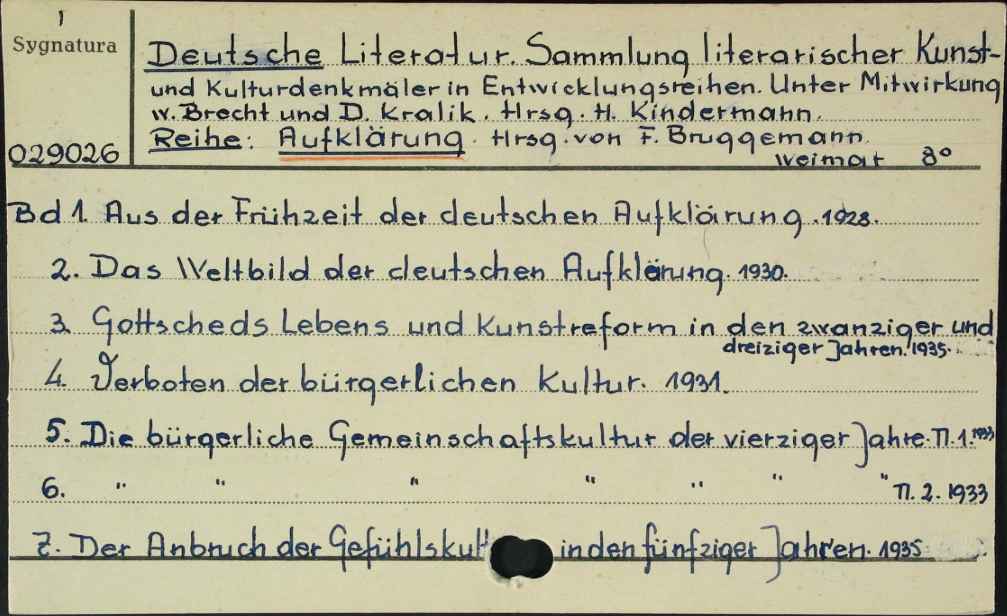 Sygnatura
029026
Deutsche Literatur. Sammlung literarischer Kunst-
und Kulturdenkmäler in Entwicklungsreihen. Unter Mitwirkung
w. Brecht und D. Kralik. Hrsg. H. Kindermann.
Reihe: Aufklärung. Hrsg. von F. Bruggemann.
Weimar 8°
Bd 1. Aus der Frühzeit der deutschen Aufklärung. 1928.
2. Das Weltbild der deutschen Aufklärung. 1930.
3. Gottscheds Lebens und Kunstreform in den zwanziger und
dreiziger Jahren. 1935.
4. Verboten der bürgerlichen Kultur. 1931.
5. Die bürgerliche Gemeinschaftskultur der vierziger Jahre. Tl. 1. 1933
6. " " " " " " " Tl. 2. 1933
7. Der Anbruch der Gefühlskult in den fünfziger Jahren. 1935